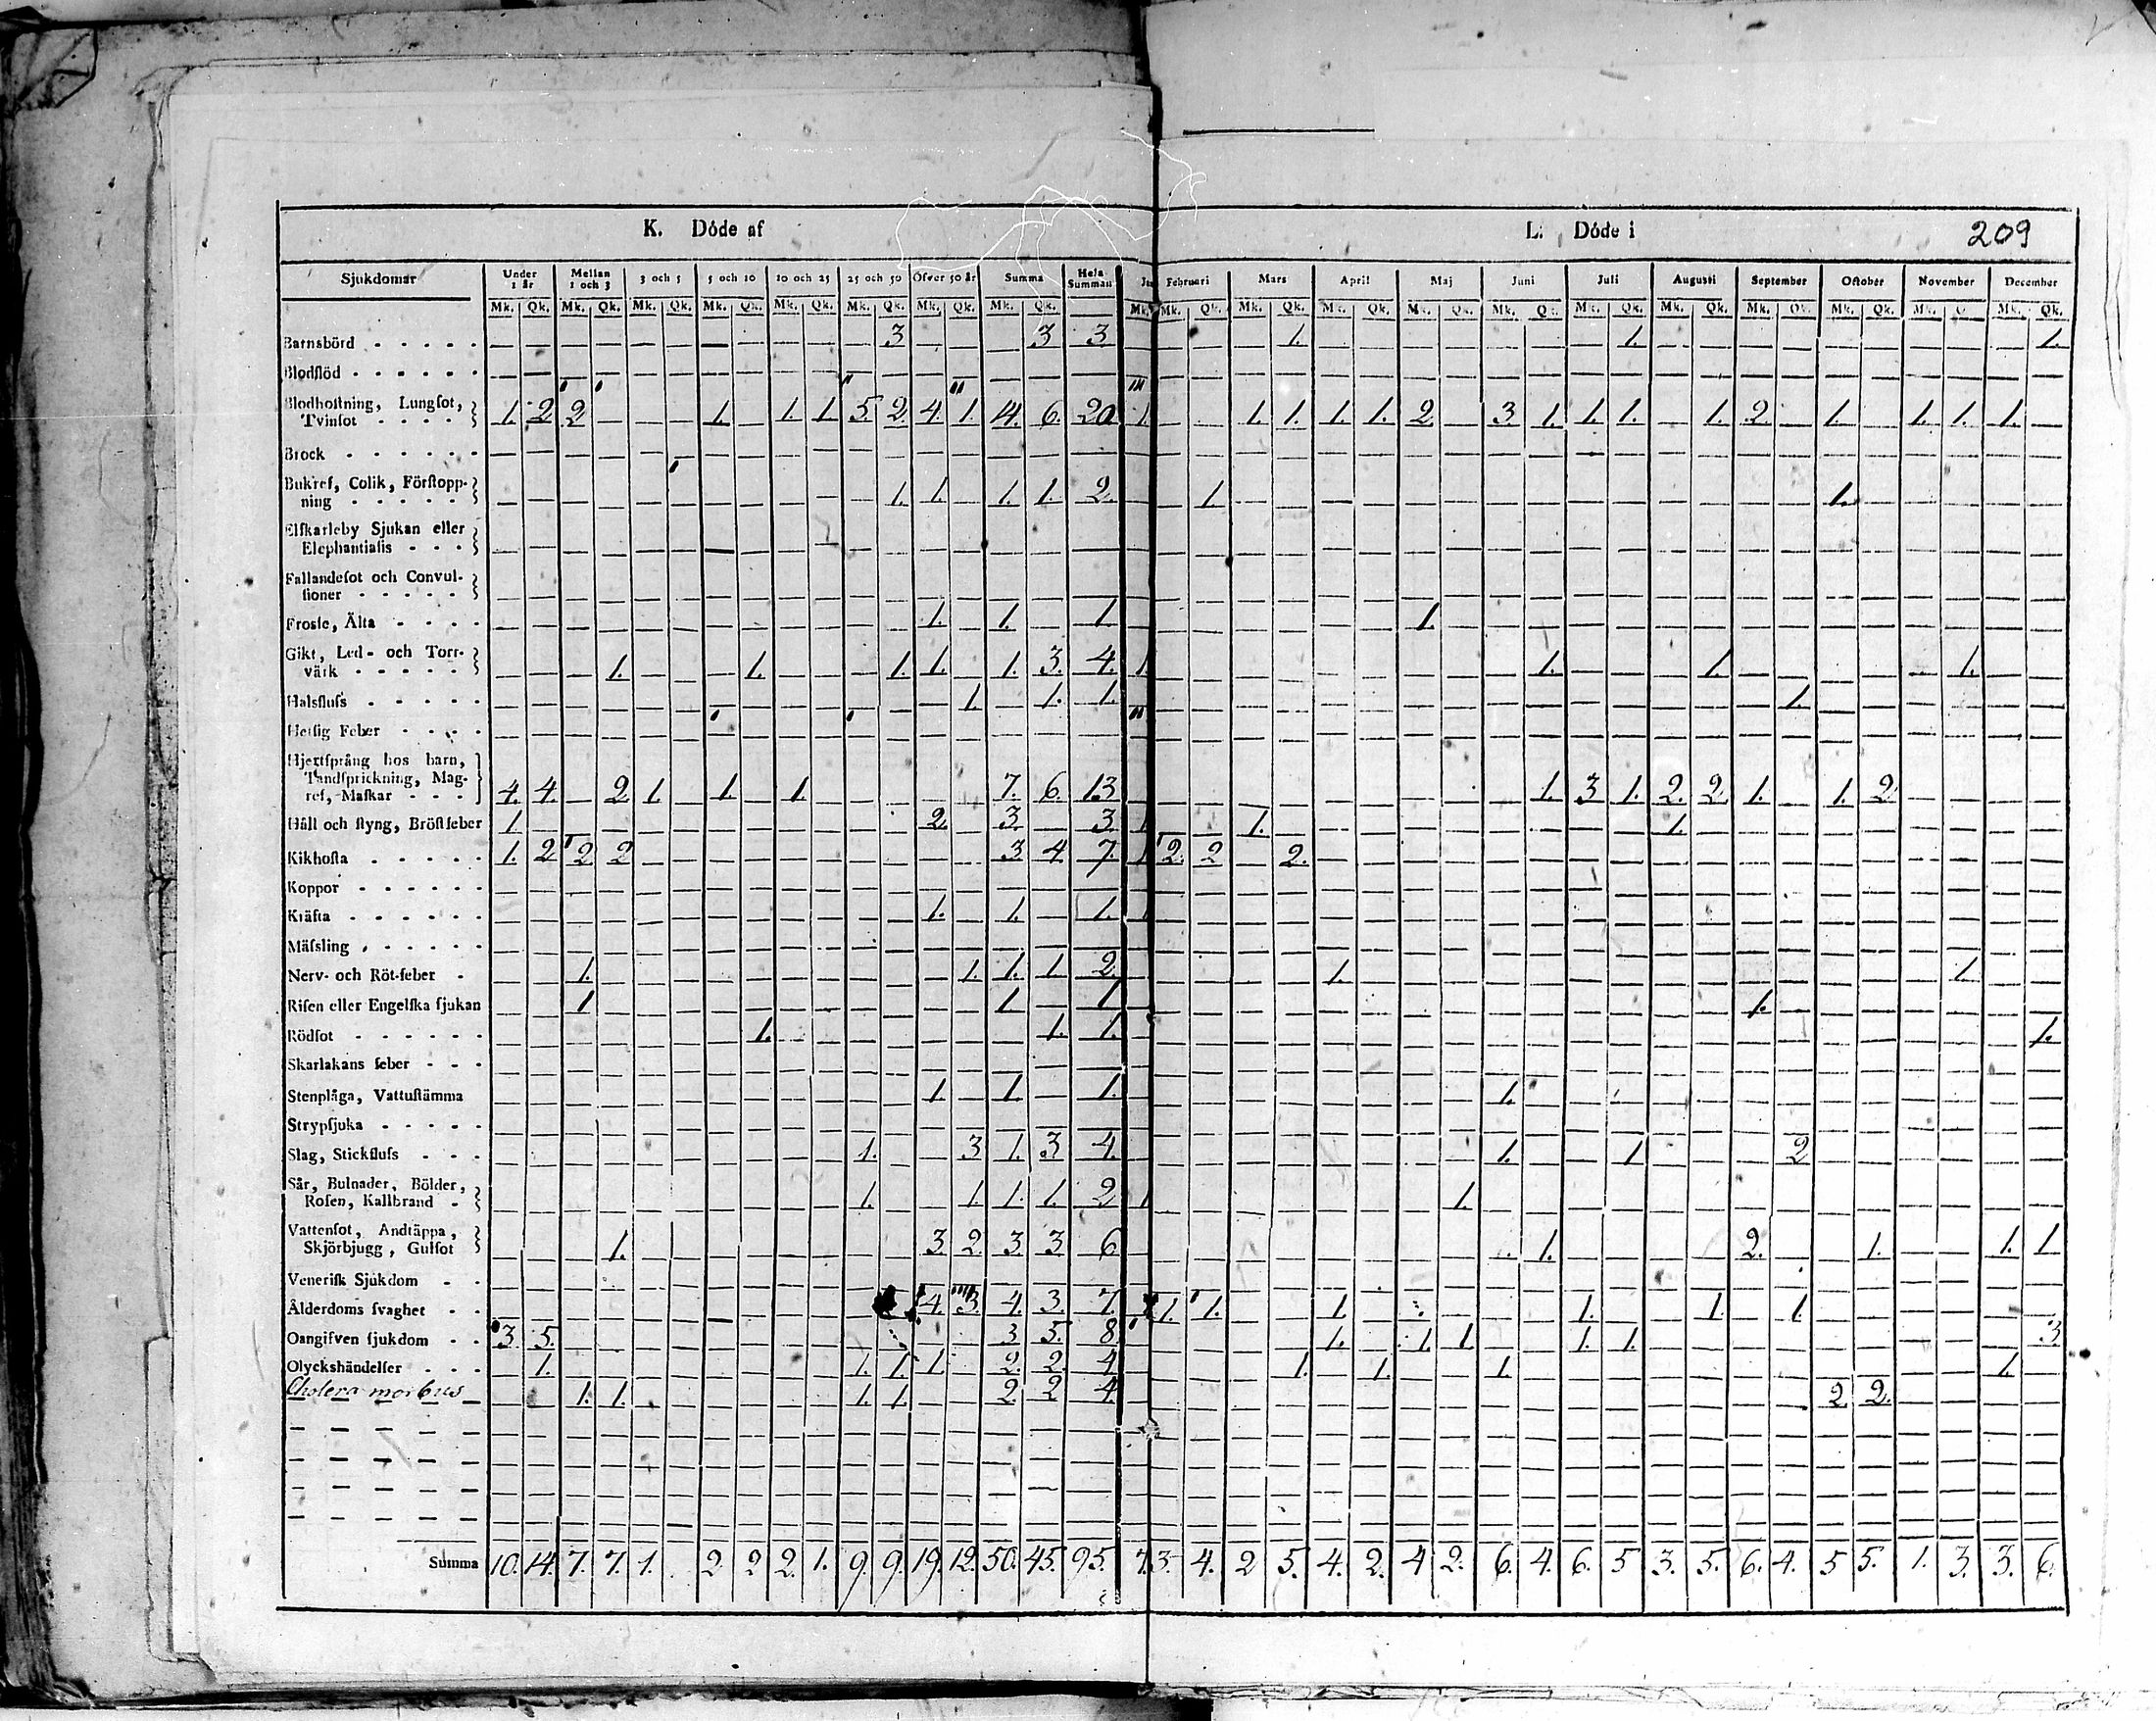 K. Döde af
L. Döde i
209
Sjukdomar Under 1 år Mellan 1 och 3 3 och 5 5 och 10 10 och 25 25 och 50 Öfver 50 år Summa Hela Summan Februari Mars April Maj Juni Juli Augusti September Oktober November December
Mk. Qk. Mk. Qk. Mk. Qk. Mk. Qk. Mk. Qk. Mk. Qk. Mk. Qk. Mk. Qk. Mk. Mk. Qk. Mk. Qk. Mk. Qk. Mk. Qk. Mk. Qk. Mk. Qk. Mk. Qk. Mk. Qk. Mk. Qk. Mk. Mk. Qk.
Barnsbörd - - - - - 3 3 3 1. 1. 1.
Blodflöd - - - - - -
Blodhostning, Lungsot,
Tvinsot - - - - 1. 2 2 1. 1. 1 5. 2. 4. 1. 14. 6. 20 1. 1. 1. 1. 1. 2. 3 1. 1. 1. 1. 2. 1. 1. 1. 1.
Brock - - - - - -
Bukref, Colik, Förstopp-
ning - - - - - 1. 1. 1. 1. 2 1. 1.
Elskarleby Sjukan eller
Elephantiasis - - -
Fallandesot och Convul-
sioner - - - - -
Frossa, Älta - - - - 1. 1. 1 1.
Gikt, Led- och Torr-
värk - - - - - 1. 1. 1. 1. 1. 3. 4. 1. 1. 1. 1.
Halsfluss - - - - - 1. 1. 1. 1.
Hetsig Feber - - - -
Hjertsprång hos barn,
Tandsprickning, Mag-
ref, Maskar - - - 4. 4. 2 1. 1. 1. 7. 6. 13 1. 3 1. 2. 2. 1. 1. 2
Håll och styng, Bröstfeber 1. 2. 3. 3. 1 1. 1.
Kikhosta - - - - - 1. 2 2 2 3 4 7. 1 2. 2 2.
Koppor - - - - - -
Kräfta - - - - - - 1. 1. 1.
Mässling - - - - - -
Nerv- och Röt-feber - 1. 1. 1. 1. 2. 1. 1.
Risen eller Engelska sjukan 1 1 1 1.
Rödsot - - - - - - 1. 1. 1. 1.
Skarlakans feber - - -
Stenplåga, Vattustämma 1. 1. 1. 1.
Strypsjuka - - - - -
Slag, Stickfluss - - - 1. 3 1. 3 4. 1. 1 2
Sår, Bulnader, Bölder,
Rosen, Kallbrand - 1. 1. 1. 1. 2 1 1.
Vattensot, Andtäppa,
Skjörbjugg, Gulsot 1. 3 2. 3. 3 6 1. 2. 1. 1. 1
Venerisk Sjukdom - -
Ålderdoms svaghet - - 4. 3. 4. 3. 7 1. 1. 1 1. 1. 1.
Oangifven sjukdom - - 3 5. 3 5. 8 1. 1 1 1. 1. 3
Olyckshändelser - - - 1. 1. 1. 1 2. 2. 4 1. 1. 1. 1.
Cholera morbus 1. 1. 1. 1. 2. 2 4. 2 2.
Summa 10. 14. 7. 7. 1. 2 2 2. 1. 9. 9. 19. 12. 50. 45. 95. 7. 3. 4. 2 5. 4. 2. 4 2. 6. 4. 6. 5 3. 5. 6. 4. 5 5. 1. 3. 3. 6.